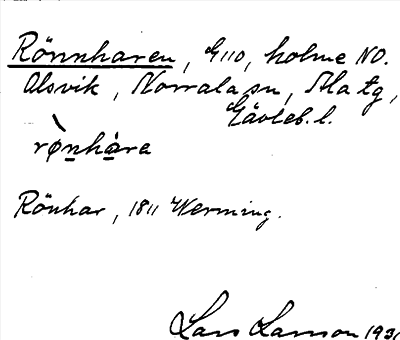 Rönnharen, G110, holme NO.
Alsvik, Norrala sn, Ala tg,
Gävleb. l.
rø̀nhàra
Rönhar, 1811 Werming.
Lars Larsson 1931